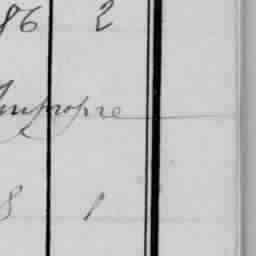 86 2
Impropre
8 1